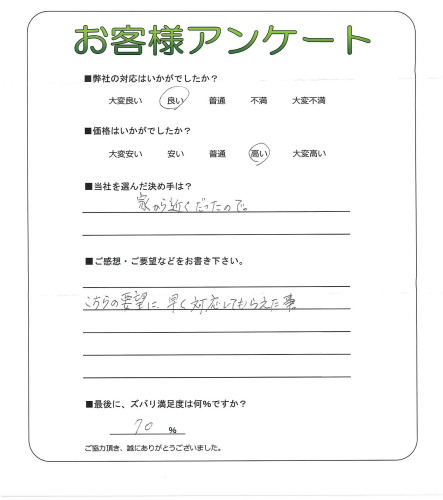 お客様アンケート
■弊社の対応はいかがでしたか？
大変良い 良い 普通 不満 大変不満
■価格はいかがでしたか？
大変安い 安い 普通 高い 大変高い
■当社を選んだ決め手は？
家から近くだったので。
■ご感想・ご要望などをお書き下さい。
こちらの要望に、早く対応してもらえた事。
■最後に、ズバリ満足度は何%ですか？
70 %
ご協力頂き、誠にありがとうございました。